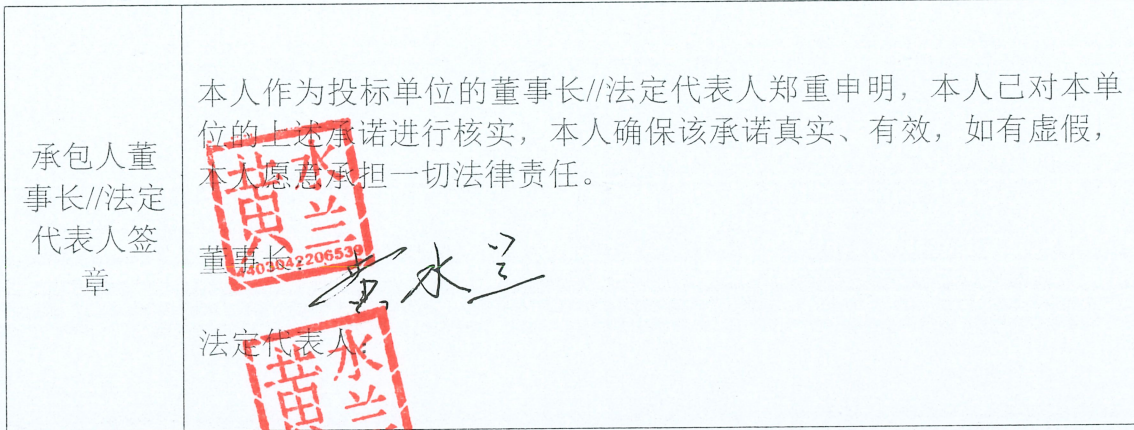 承包人董
事长//法定
代表人签
章
本人作为投标单位的董事长//法定代表人郑重申明，本人已对本单
位的上述承诺进行核实，本人确保该承诺真实、有效，如有虚假，
本人愿意承担一切法律责任。
董事长：
黄水兰
水兰
黄
4403042206539
法定代表人：
水兰
黄